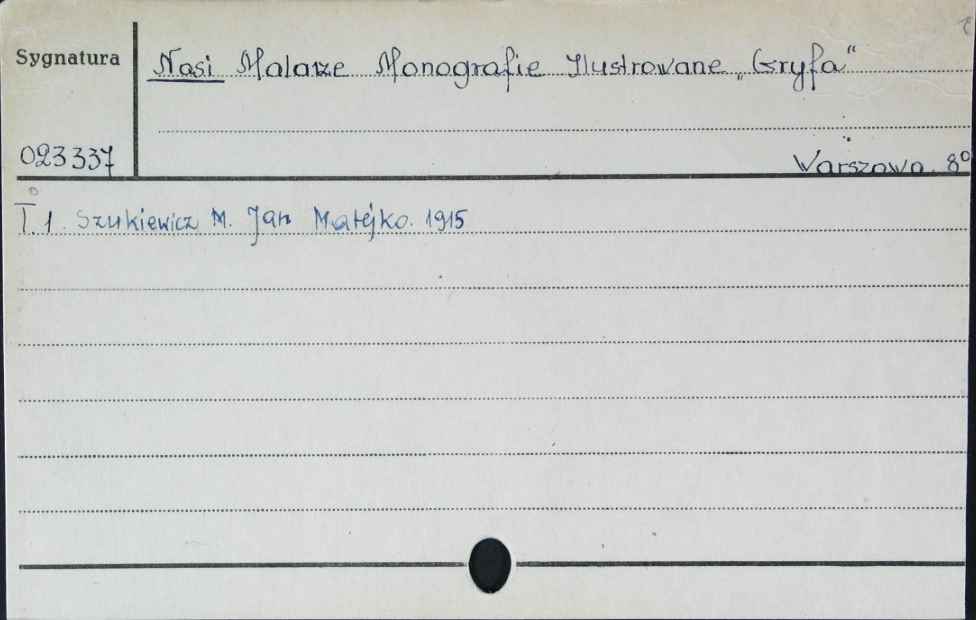 Sygnatura
Nasi Malarze Monografie Ilustrowane „Gryfa”
023337
Warszawa. 8°
T. 1. Szukiewicz M. Jan Matejko. 1915